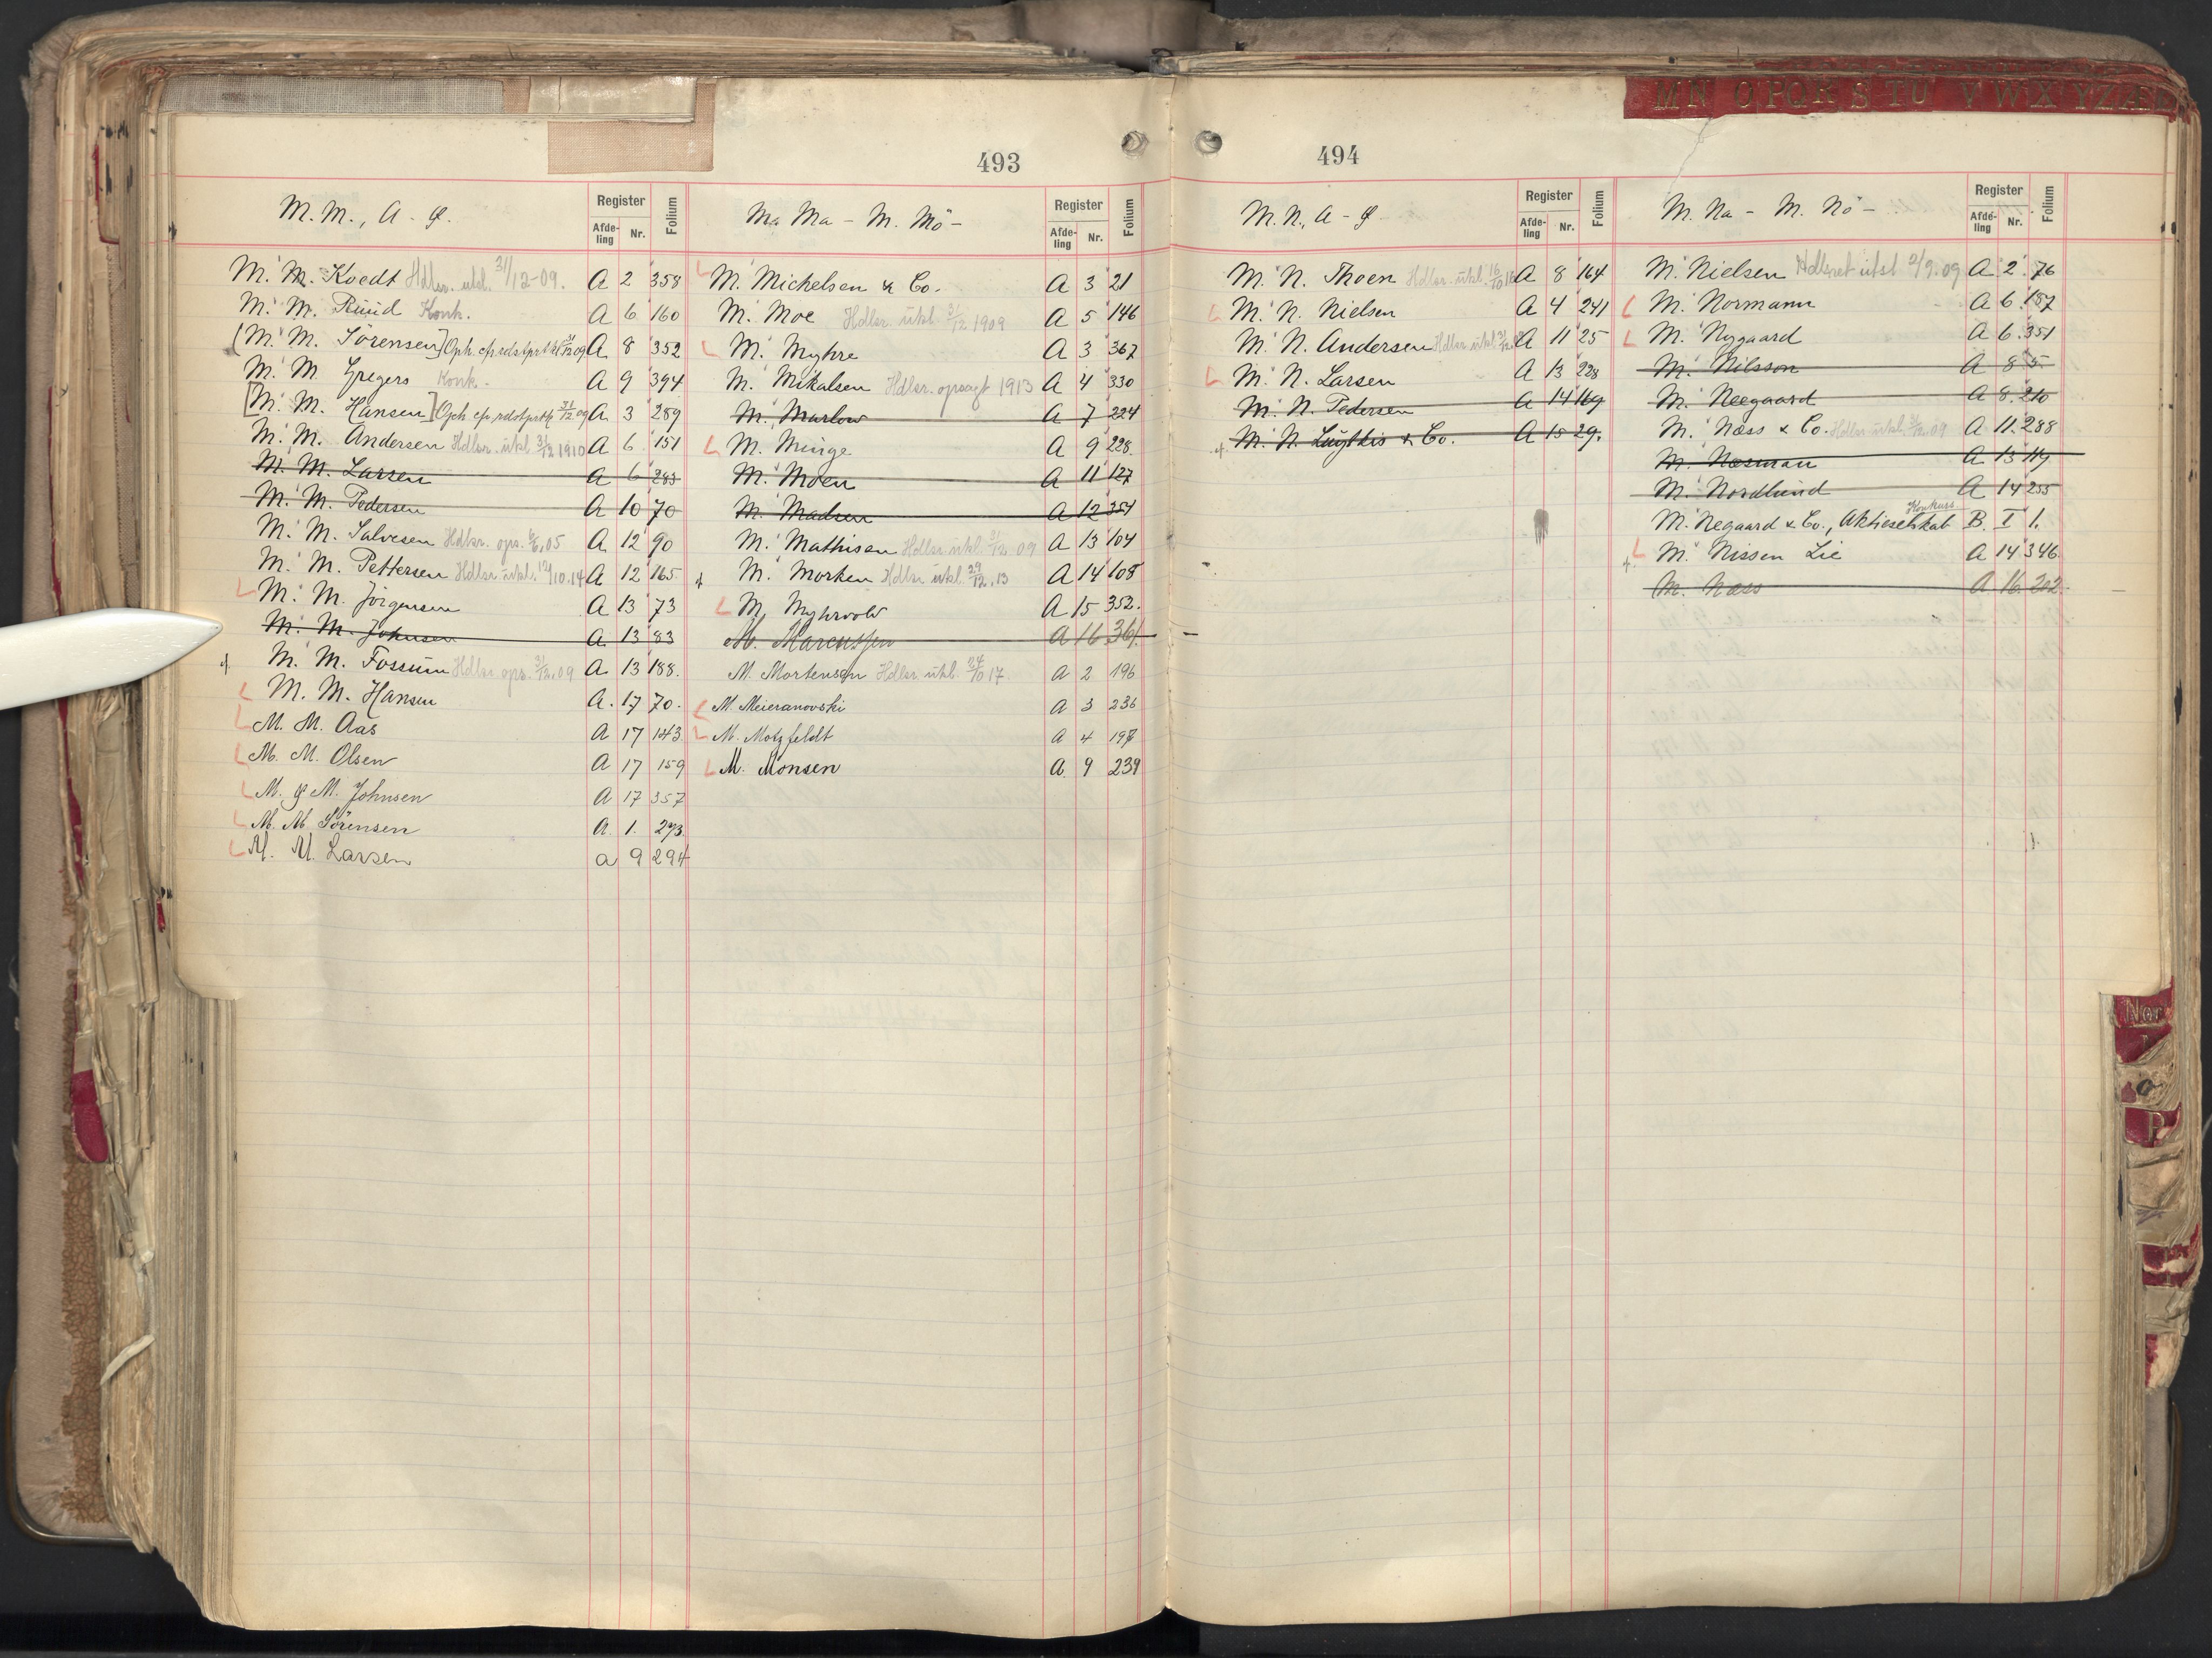 MN OPQR S TU V W X Y Z Æ
493
M. M., A - Ø.
Register
Afdeling Nr. Folium
M. M. Koedt Hdlsr. utsl. 31/12-09. A 2 358
M. M. Ruud Konk. A 6 160
[M. M. Sörensen] A 8 352
M. M. Gregers Konk. A 9 394
[M. M. Hansen] A 3 289
M. M. Andersen Hdlsr. utsl. 31/12 1910 A 6 151
M. M. Larsen A 6 283
M. M. Pedersen A 10 70
M. M. Salvesen Hdlsr. ops. 6/6.05 A 12 90
M. M. Pettersen Hdlsr. utsl. 10.14 A 12 165
M. M. Jörgensen A 13 73
M. M. Johnsen A 13 83
M. M. Fossum Hdlsr. ops. 31/12.09 A 13 188.
M. M. Hansen A. 17 70.
M. M. Aas A 17 143
M. M. Olsen A 17 159
M. & M. Johnsen A 17 357
M. M. Sörensen A. 1. 293.
M. M. Larsen a 9 294
Ma Ma - M. Mö -
Register
Afdeling Nr. Folium
M. Michelsen & Co. A 3 21
M. Moe Hdlsr. utsl. 31/12 1909 A 5 146
M. Myhre A 3 367
M. Mikalsen Hdlsr. opsagt 1913 A 4 330
M. Marlow A 7 224
M. Minge A 9 228.
M. Moen A 11 127
M. Madsen A 12 354
M. Mathisen Hdlsr. utsl. 31/12.09 A 13 104
M. Morken Hdlsr. utsl. 29/12.13 A 14 108
M. Myhrvold A 15 352.
M. Marcussen A 16 361.
M. Mortensen Hdlsr. utsl. 24/10 17. A 2 196
M. Meieranovski A 3 236
M. Motzfeldt A 4 197
M. Monsen A. 9 239
494
M. N., A - Ø
Register
Afdeling Nr. Folium
M. N. Thoen Hdlsr. utsl. 16/10 A 8 164
M. N. Nielsen A 4 241
M. N. Andersen Hdlsr. utsl. A 11 25
M. N. Larsen A 13 228
M. N. Pedersen A 14 169
M. N. Luytkis & Co. A 15 29.
M. Na - M. Nö -
Register
Afdeling Nr. Folium
M. Nielsen Hdlsret utsl 9.09 A 2 76
M. Normann A 6 187
M. Nygaard A 6. 351
M. Nilsson A 8 5
M. Neegaard A 8. 210
M. Næss & Co. Hdlsr. utsl. 31/12.09 A 11. 288
M. Næsman A 13 119
M. Nordlund A 14 255
Konkurs
M. Negaard & Co., Aktieselskab B. I 1.
M. Nissen Lie A 14 346.
M. Næss A 16. 202.
Nor
P